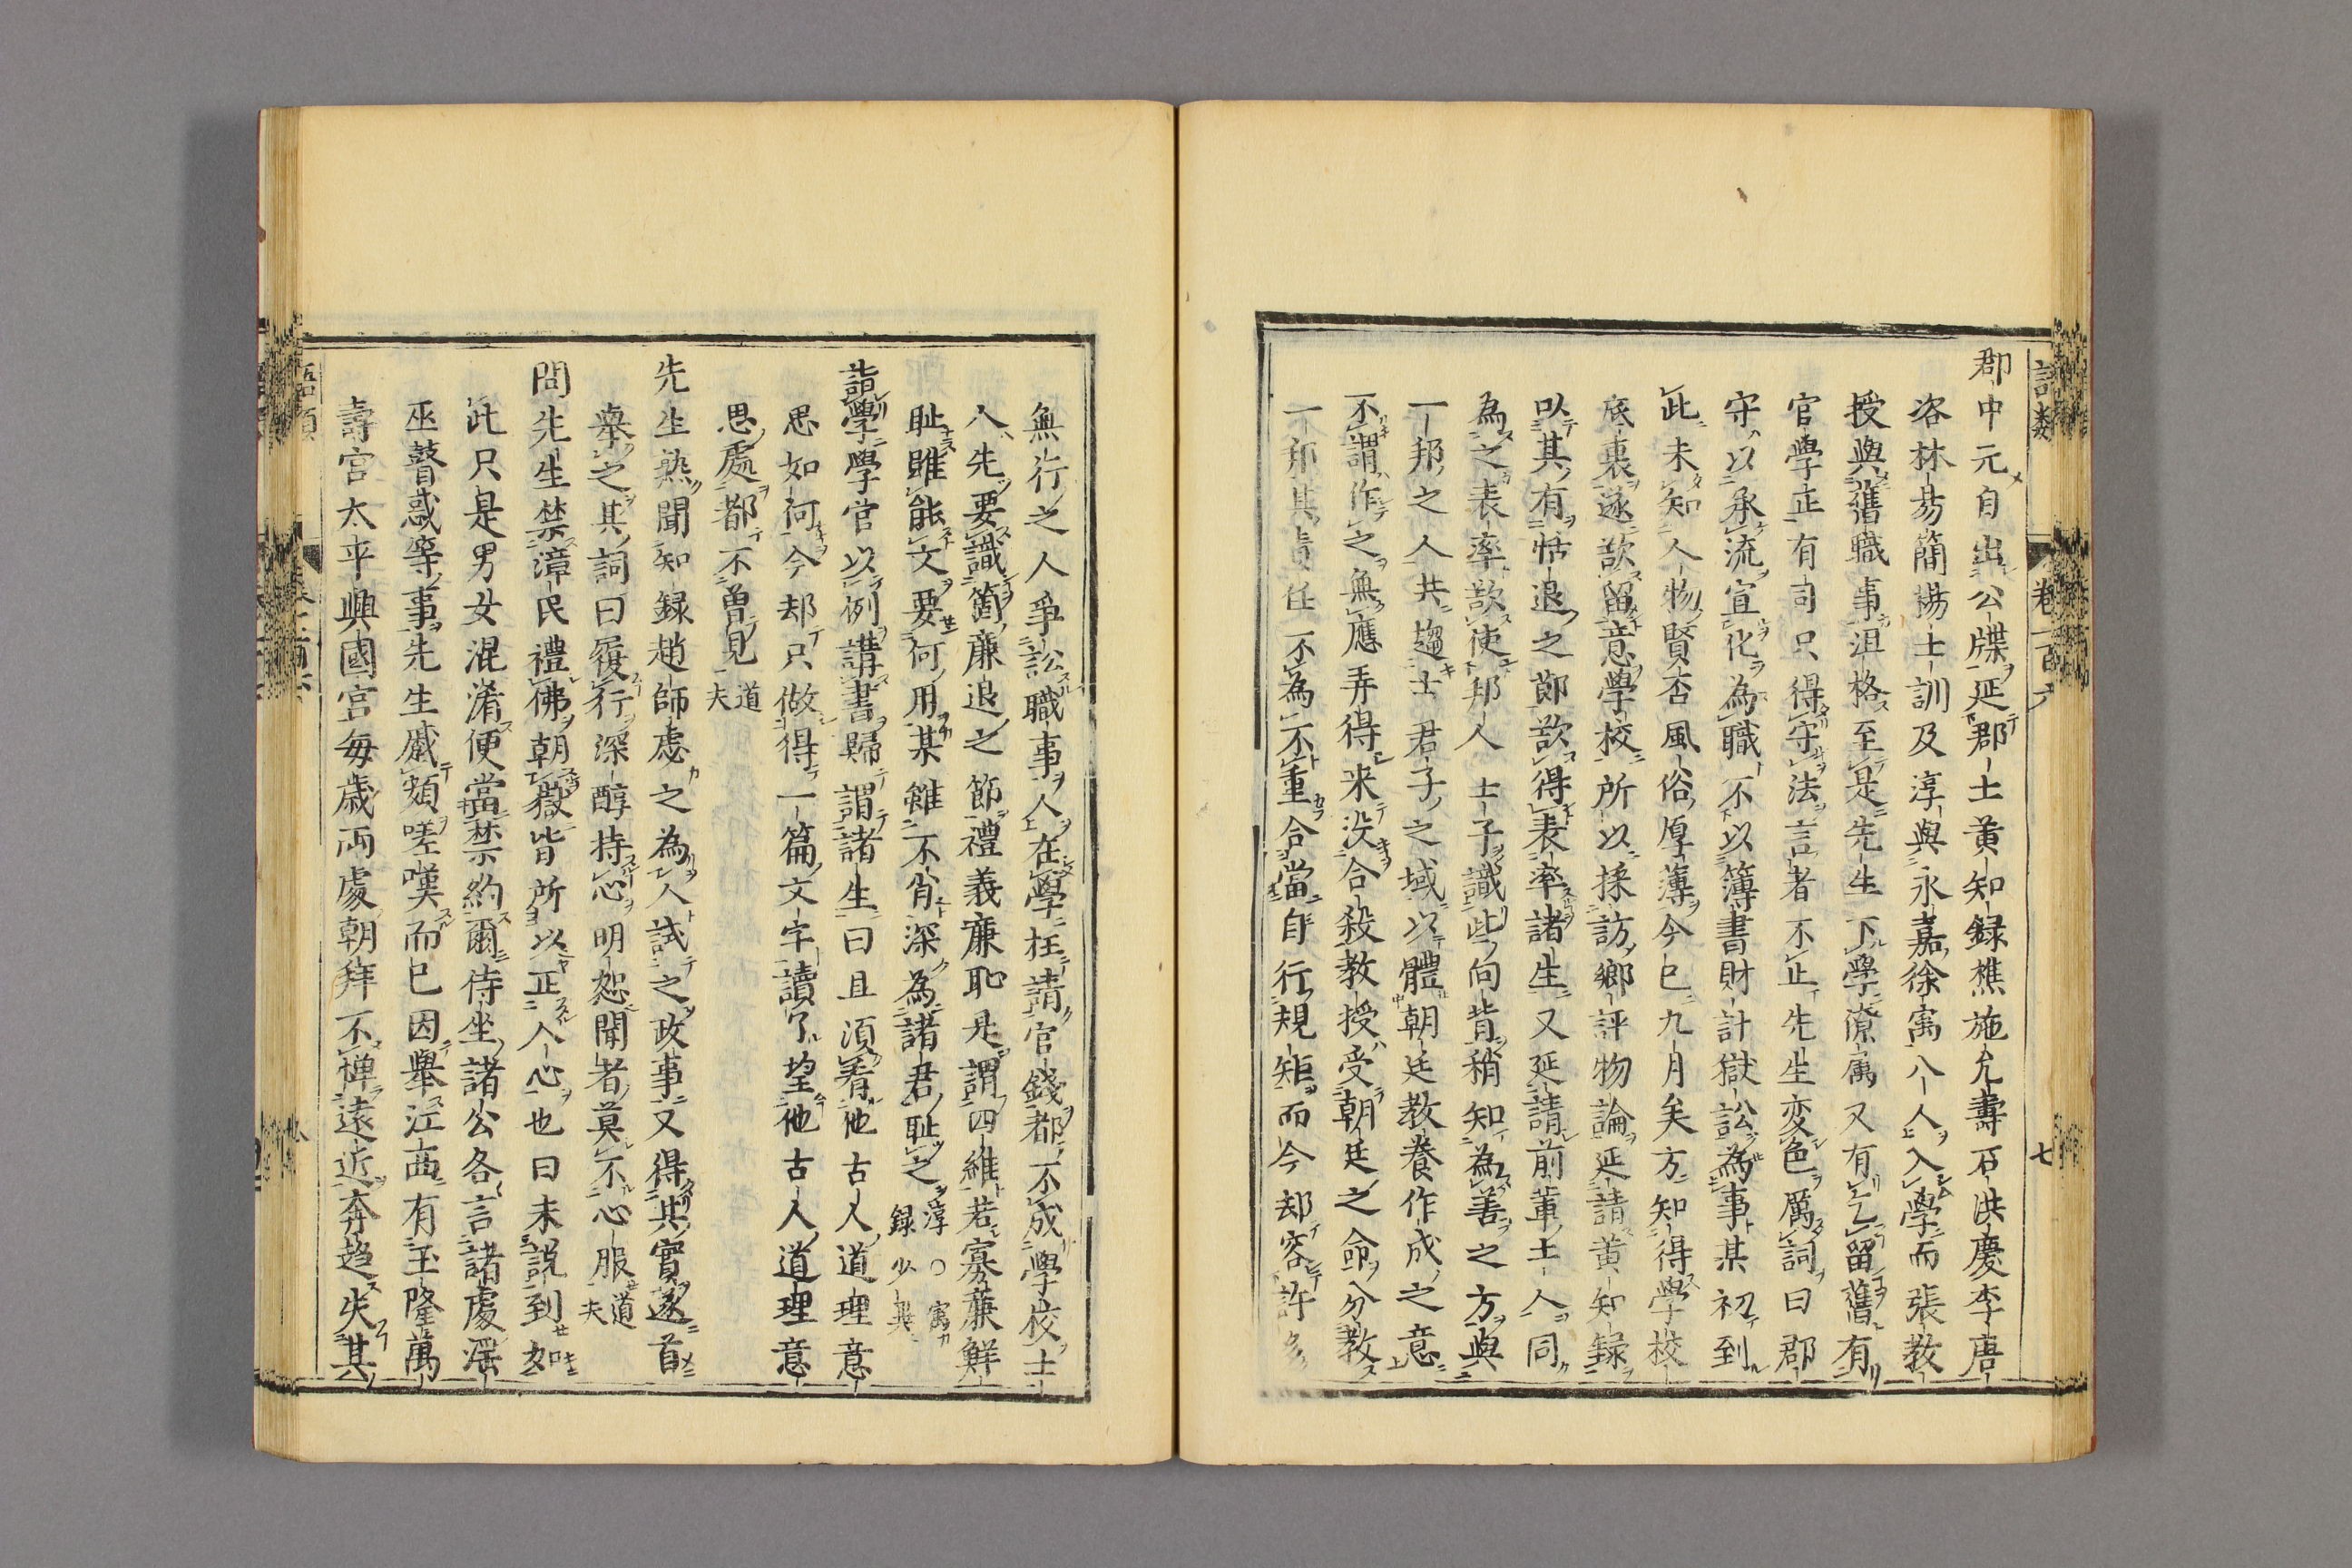 語類
卷一百六
七
郡中元自出公牒延郡士黃知錄樵施允壽石洪慶李唐
咨林易簡楊士訓及淳與永嘉徐㝢八人入學而張教
授與舊職事沮格至是先生下學僚属又有乞留舊有
官學正有司只得守法言者不止先生変色厲詞曰郡
守以承流宣化為職不以簿書財計獄訟為事某初到
此未知人物賢否風俗厚薄今已九月矣方知得學校
底裏遂欲留意學校所以採訪鄉評物論延請黃知録
以其有恬退之節欲得表率諸生又延請前輩士人同
為之表率欲使邦人士子識些向背稍知為善之方與
一邦之人共趨士君子之域以體朝廷教養作成之意
不謂作之無應弄得来没合殺教授受朝廷之命分教
一邦其責任不為不重合當自行規矩而今却容許多
無行之人爭訟職事人在學枉請官錢都不成學校士
人先要識箇廉退之節禮義廉恥是謂四維若寡廉鮮
耻雖能文要何用某雖不肖深為諸君耻之 淳○㝢録少異
詣學學官以例講書歸謂諸生曰且須看他古人道理意
思如何今却只做得一篇文字讀了望他古人道理意
思處都不曽見 道夫
先生𤍠聞知録趙師虙之為人試之政事又得其實遂首
舉之其詞曰履行深醇持心明恕聞者莫不心服 道夫
問先生禁漳民禮佛朝嶽皆所以正人心也曰未說到如
此只是男女混淆便當禁約爾侍坐諸公各言諸處淫
巫瞽惑等事先生蹙頞嗟嘆而已因舉江西有玉隆萬
壽宮太平興國宮每歲两處朝拜不憚遠近奔趋失其
語類